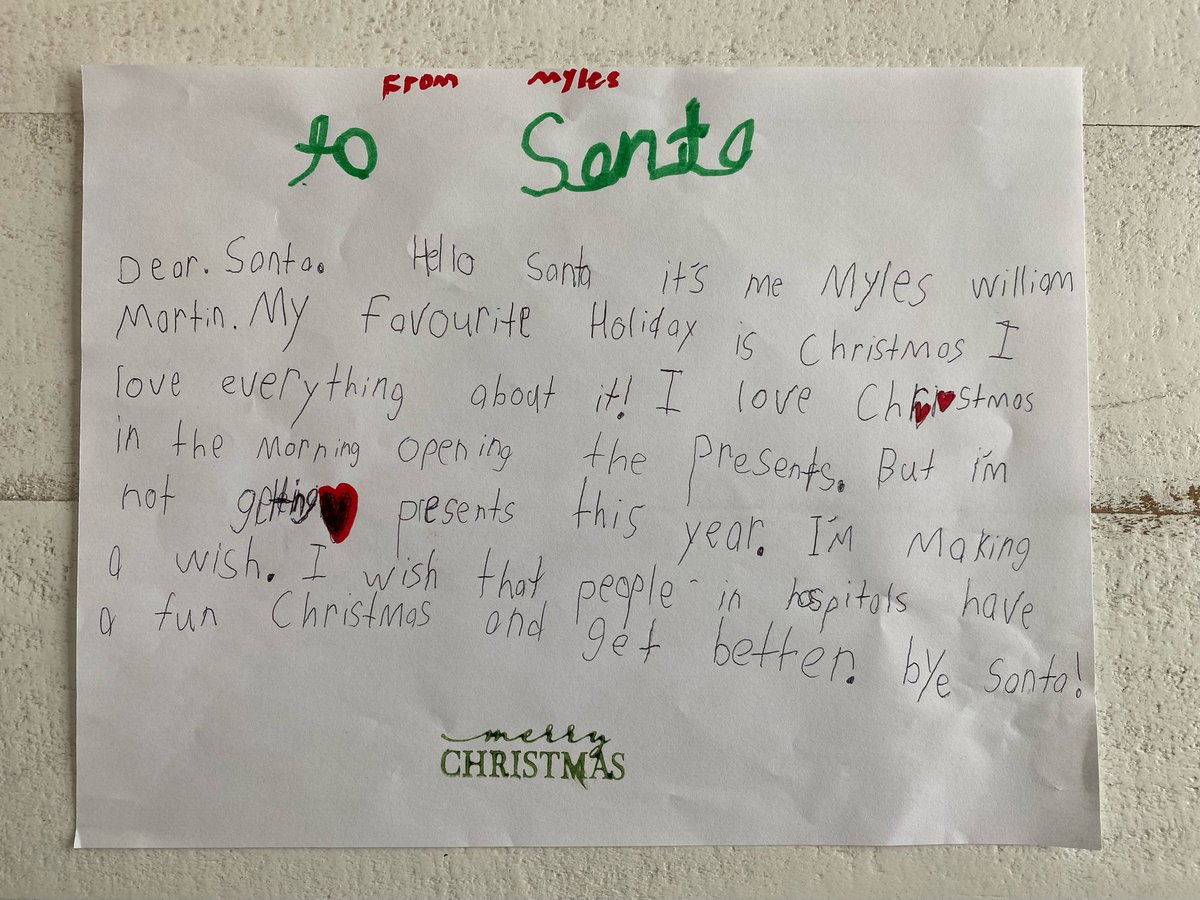 From Myles
to Santa
Dear. Santa. Hello Santa it's me Myles william
Martin. My Favourite Holiday is Christmas I
love everything about it! I love Christmas
in the Morning opening the presents. But i'm
not getting presents this year. I'm Making
a wish. I wish that people in hospitals have
a fun Christmas and get better. bye Santa!
merry
CHRISTMAS